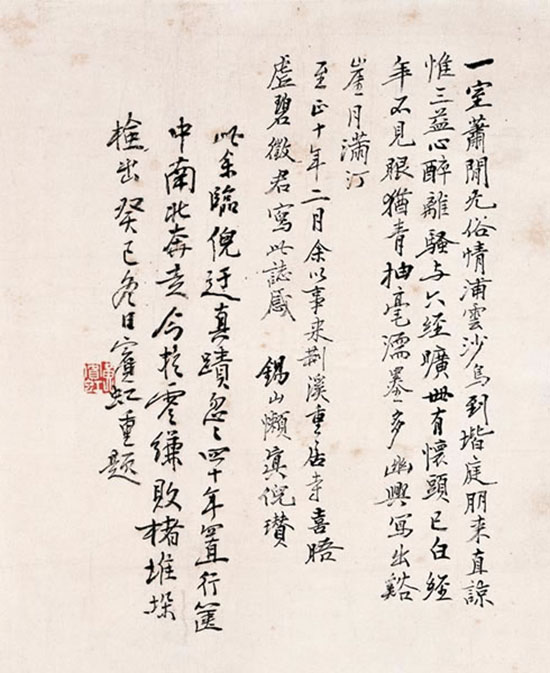 一室蕭閒无俗情浦雲沙鳥到堦庭朋来直諒
惟三益心醉離騷与六经曠世有懷頭已白經
年不見眼猶青抽毫濡墨多幽興寫出谿
崖月滿汀
至正十年二月余以事来荆溪重居寺喜晤
虚碧徵君寫此誌感 錫山懶倪瓚
此余臨倪迂真蹟忽〻四十年置行篋
中南北奔走今於零縑敗楮堆垛
檢出癸巳冬日賓虹重題